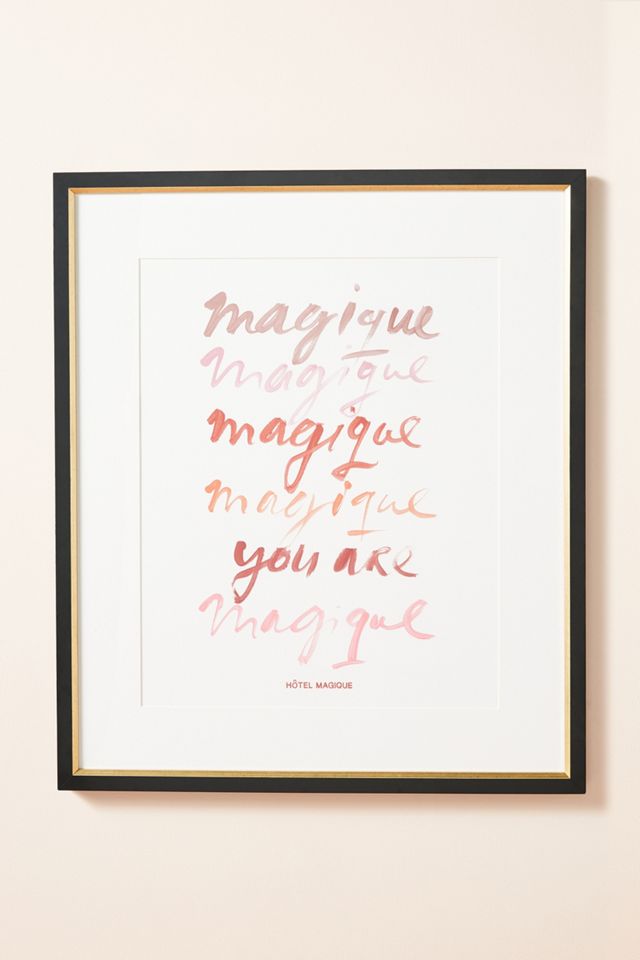 magique
magique
magique
magique
you are
magique
HÔTEL MAGIQUE